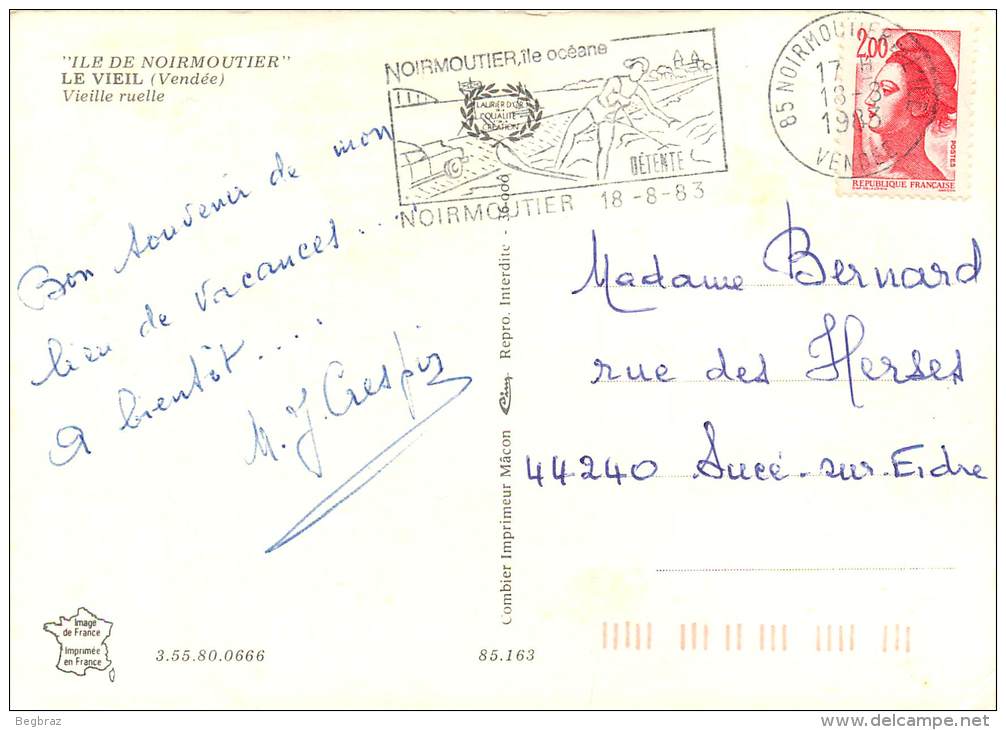 "ILE DE NOIRMOUTIER"
LE VIEIL (Vendée)
Vieille ruelle
NOIRMOUTIER, île océane
LAURIER D'OR
QUALITÉ
CRÉATION
DÉTENTE
NOIRMOUTIER 18-8-83
85 NOIRMOUTIER
17 H
18-8
1983
VENDÉE
2,00
POSTES
REPUBLIQUE FRANÇAISE
Bon souvenir de mon
lieu de vacances...
A bientôt...
M. J. Crespin
Madame Bernard
rue des Herses
44240 Sucé-sur-Erdre
Combier Imprimeur Mâcon Cim Repro. Interdite - 36 000
Image
de France
Imprimée
en France
3.55.80.0666
85.163
Begbraz
www.delcampe.net